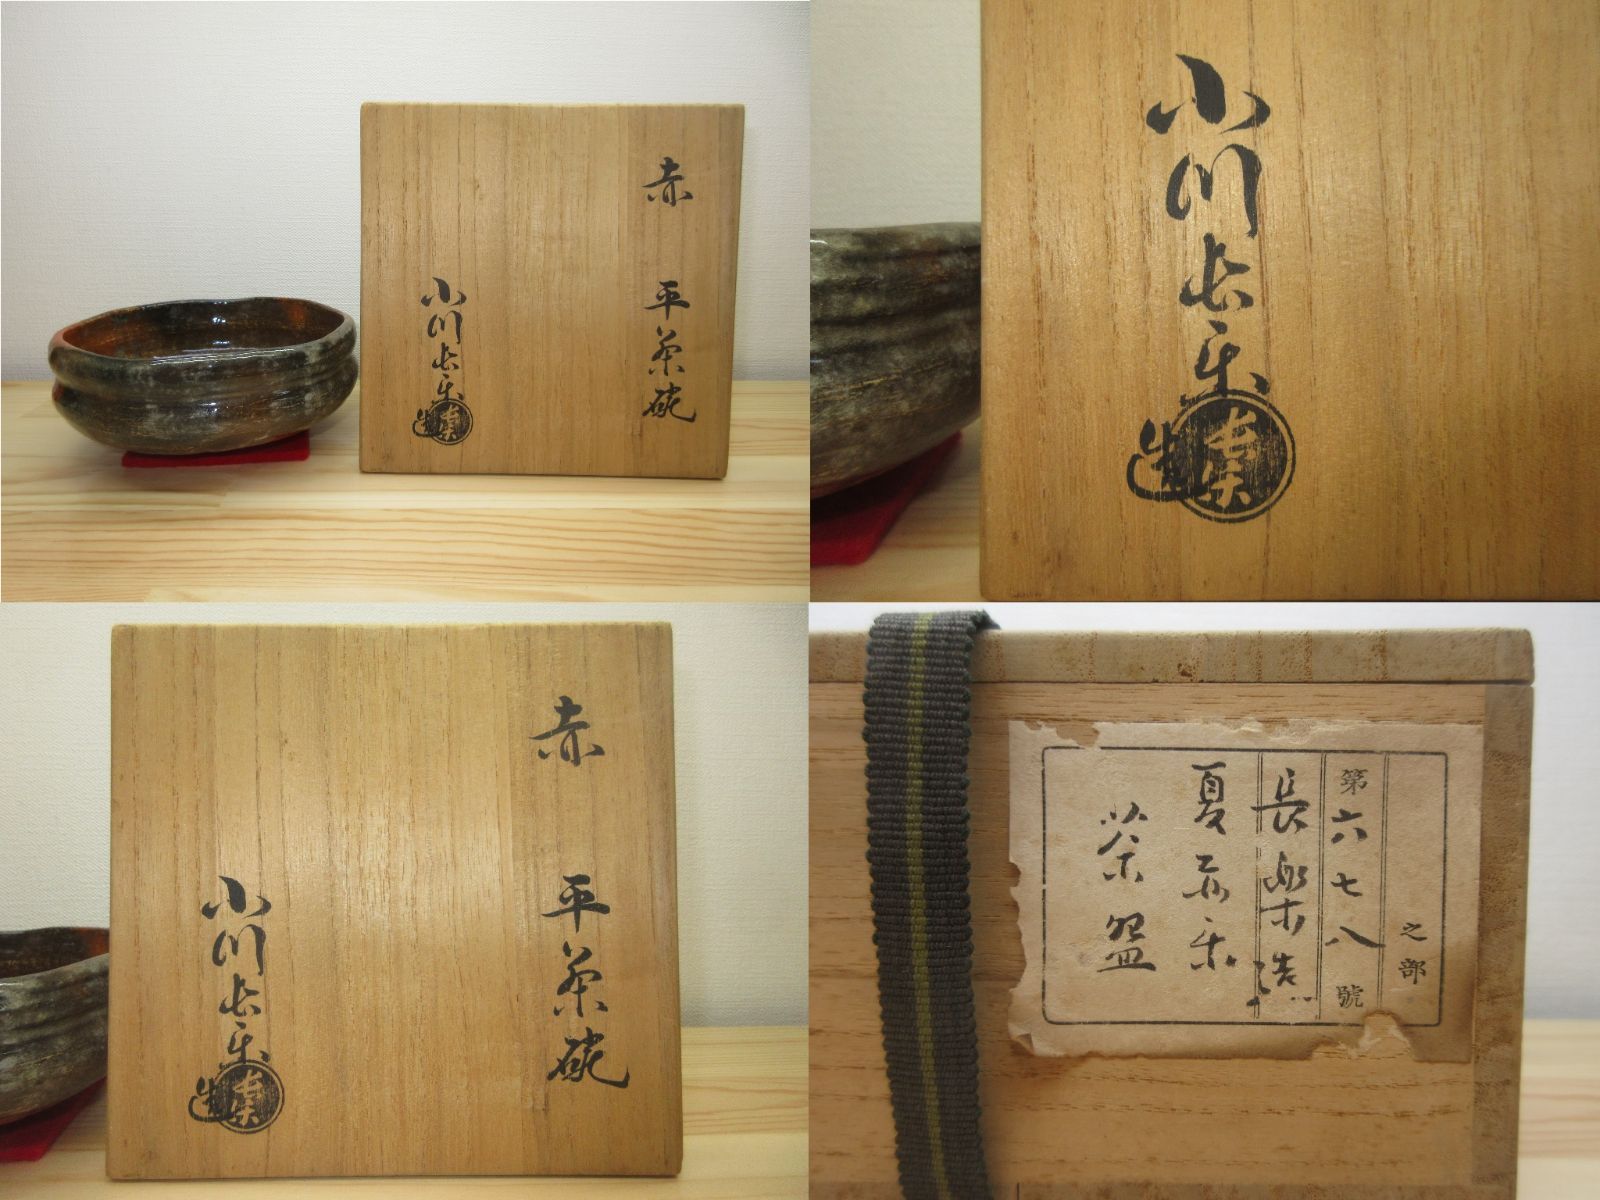 赤
平茶碗
小川長楽
造
長楽
小川長楽
造
長楽
赤
平茶碗
小川長楽
造
長楽
之部
第六七八號
長樂造
夏赤楽
茶盌